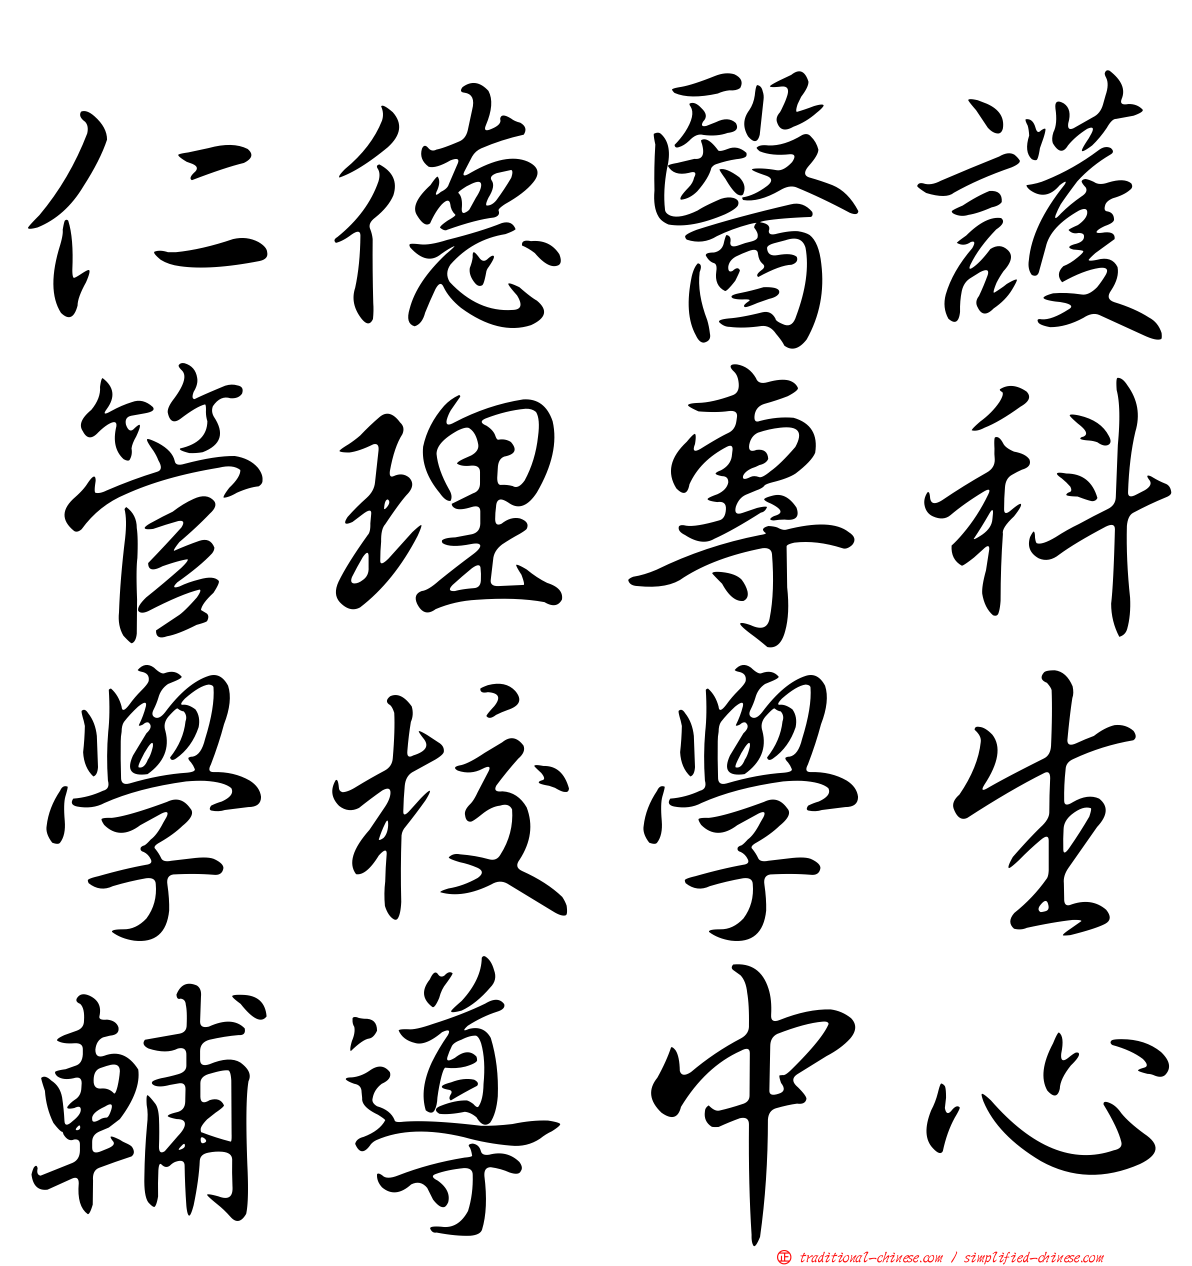 仁德醫護
管理專科
學校學生
輔導中心
正 traditional-chinese.com / simplified-chinese.com